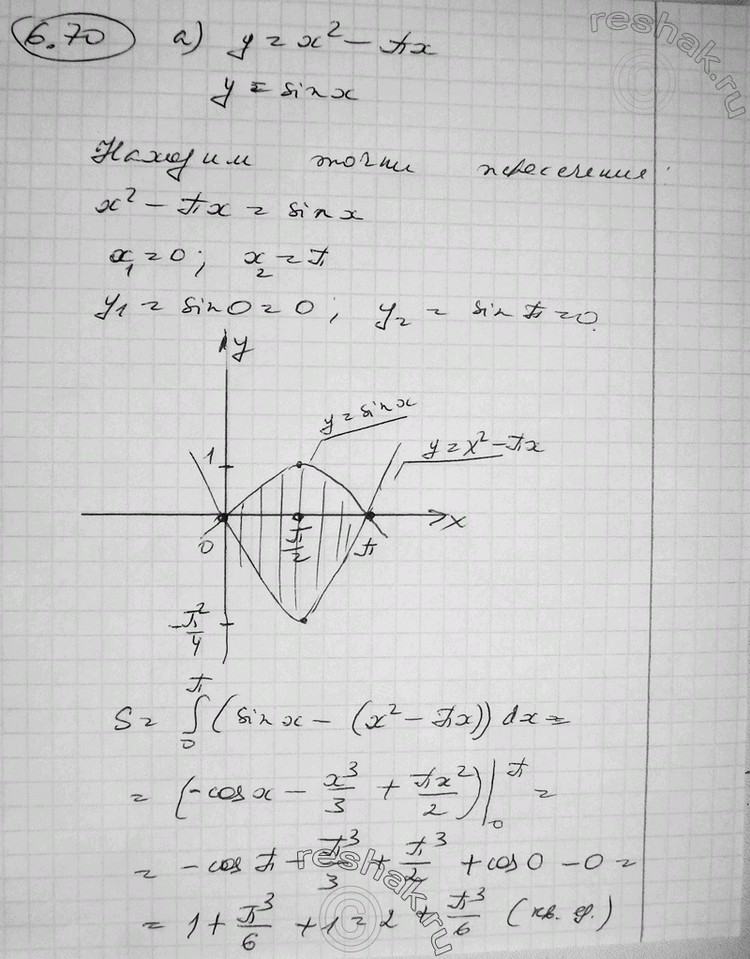 6.70 а) y = x² − πx
y = sin x
Находим точки пересечения:
x² − πx = sin x
x₁ = 0; x₂ = π
y₁ = sin 0 = 0; y₂ = sin π = 0
y
y = sin x
y = x² − πx
1
0 π/2 π x
−π²/4
S = ∫₀^π (sin x − (x² − πx)) dx =
= (−cos x − x³/3 + πx²/2)|₀^π =
= −cos π − π³/3 + π³/2 + cos 0 − 0 =
= 1 + π³/6 + 1 = 2 + π³/6 (кв. ед.)
reshak.ru
reshak.ru